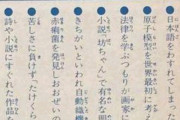 ●日本語をわすれてしまった
●原子模型を世界最初に考
●法律を学ぶつもりが画家に
●小説「坊ちゃん」で有名な明
●きちがいといわれ自動織機
●赤痢菌を発見しおおぜいの
●苦しさに負けず、たけくら
●詩や小説にすぐれた作品